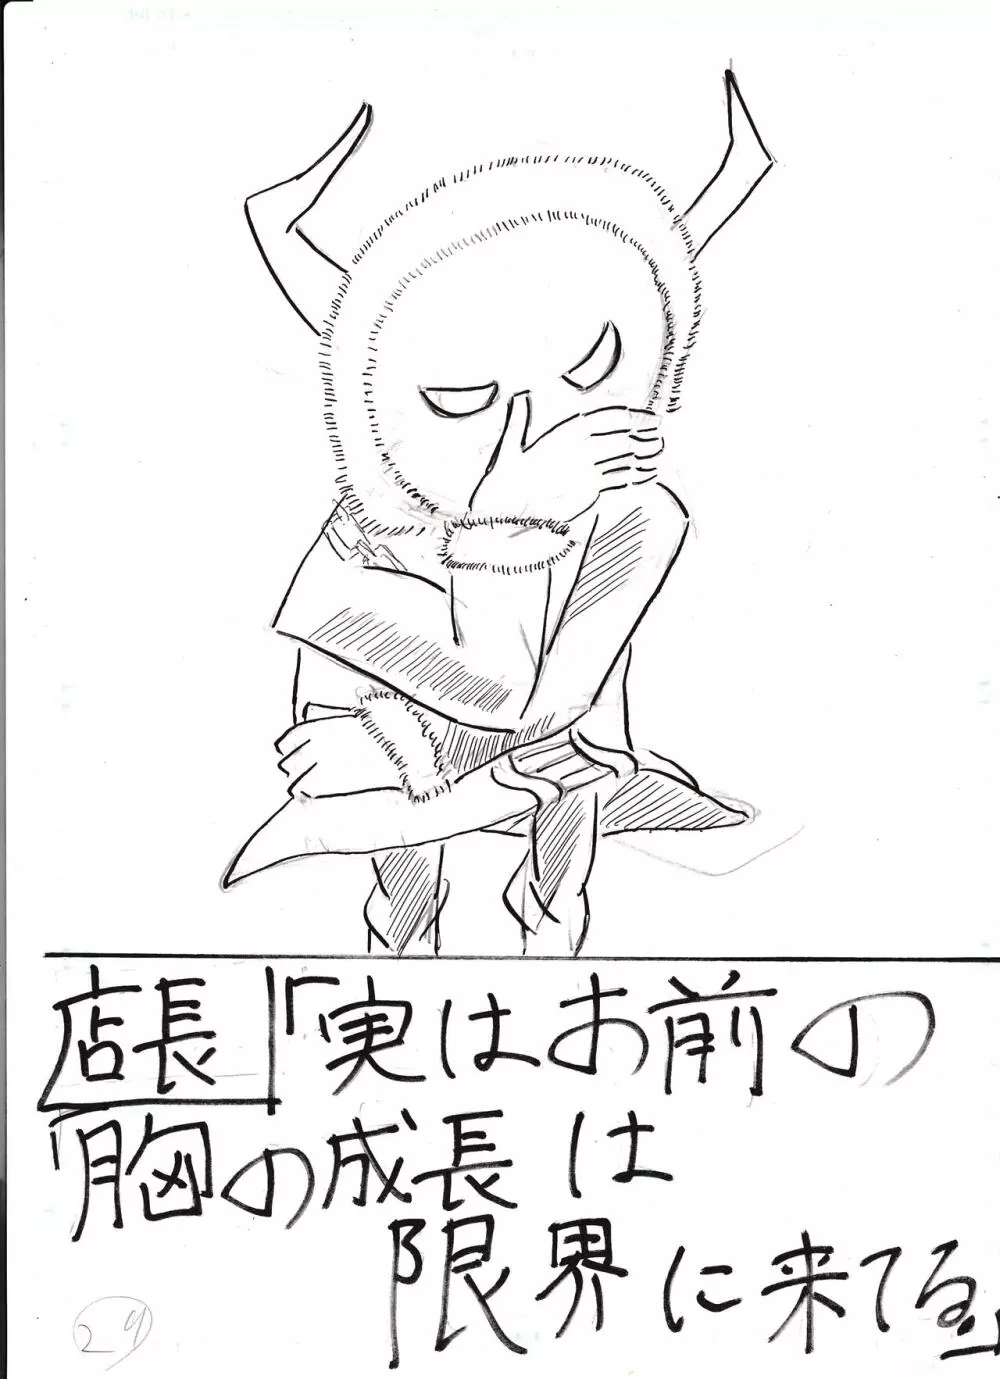 店長「実はお前の
「胸の成長は
限界に来てる」
24